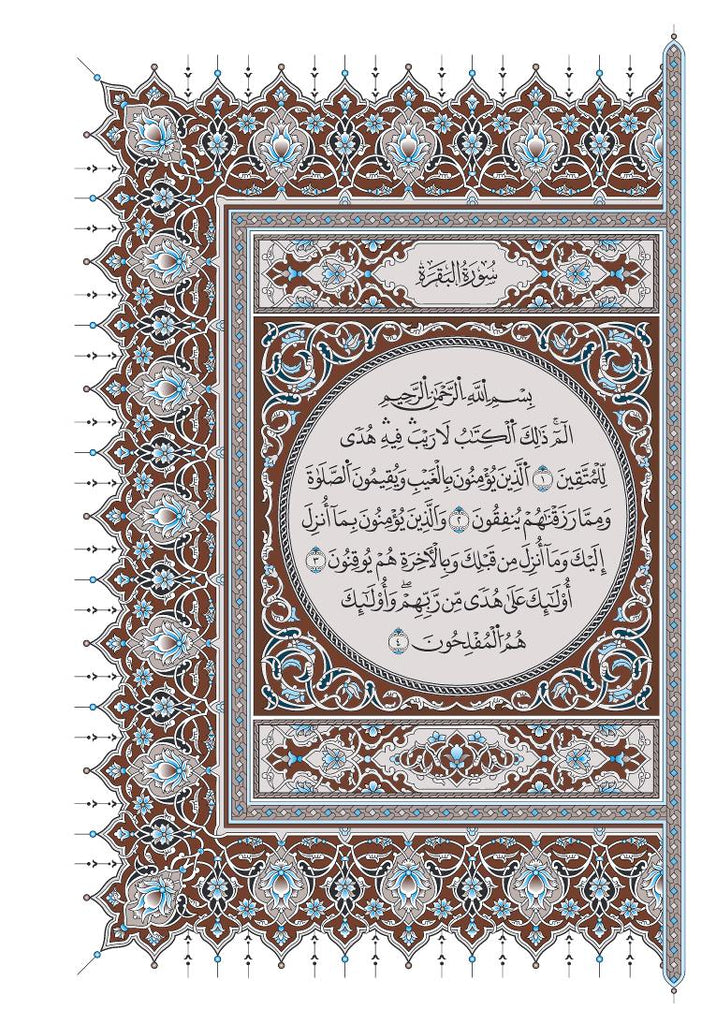 سُورَةُ الْبَقَرَةِ
بِسْمِ اللَّهِ الرَّحْمَٰنِ الرَّحِيمِ
الٓمٓۚ ذَٰلِكَ اَ۬لْكِتَٰبُ لَا رَيْبَۛ فِيهِۛ هُدٗى
لِّلْمُتَّقِينَ ١ اَ۬لَّذِينَ يُؤْمِنُونَ بِالْغَيْبِ وَيُقِيمُونَ اَ۬لصَّلَوٰةَ
وَمِمَّا رَزَقْنَٰهُمْ يُنفِقُونَ ٢ وَالَّذِينَ يُؤْمِنُونَ بِمَا أُنزِلَ
إِلَيْكَ وَمَا أُنزِلَ مِن قَبْلِكَ وَبِالْأَخِرَةِ هُمْ يُوقِنُونَ ٣
أُوْلَٰٓئِكَ عَلَىٰ هُدٗى مِّن رَّبِّهِمْۖ وَأُوْلَٰٓئِكَ
هُمُ اُ۬لْمُفْلِحُونَ ٤